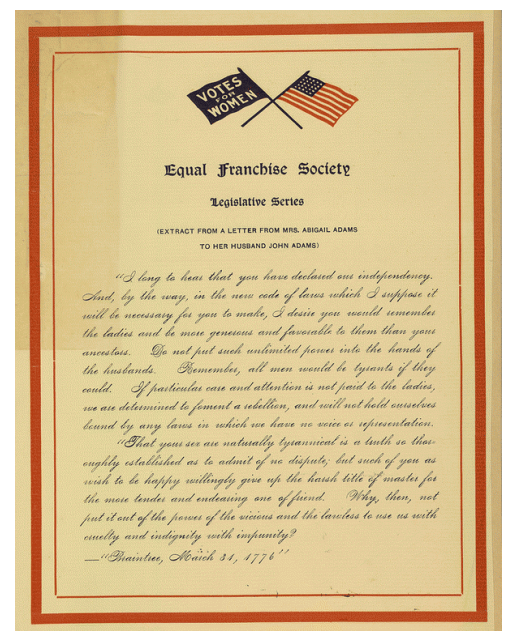 VOTES
FOR
WOMEN
Equal Franchise Society
Legislative Series
(EXTRACT FROM A LETTER FROM MRS. ABIGAIL ADAMS
TO HER HUSBAND JOHN ADAMS)
"I long to hear that you have declared our independency.
And, by the way, in the new code of laws which I suppose it
will be necessary for you to make, I desire you would remember
the ladies and be more generous and favorable to them than your
ancestors. Do not put such unlimited power into the hands of
the husbands. Remember, all men would be tyrants if they
could. If particular care and attention is not paid to the ladies,
we are determined to foment a rebellion, and will not hold ourselves
bound by any laws in which we have no voice or representation.
"That your sex are naturally tyrannical is a truth so thor-
oughly established as to admit of no dispute; but such of you as
wish to be happy willingly give up the harsh title of master for
the more tender and endearing one of friend. Why, then, not
put it out of the power of the vicious and the lawless to use us with
cruelty and indignity with impunity?
—"Braintree, March 31, 1776"